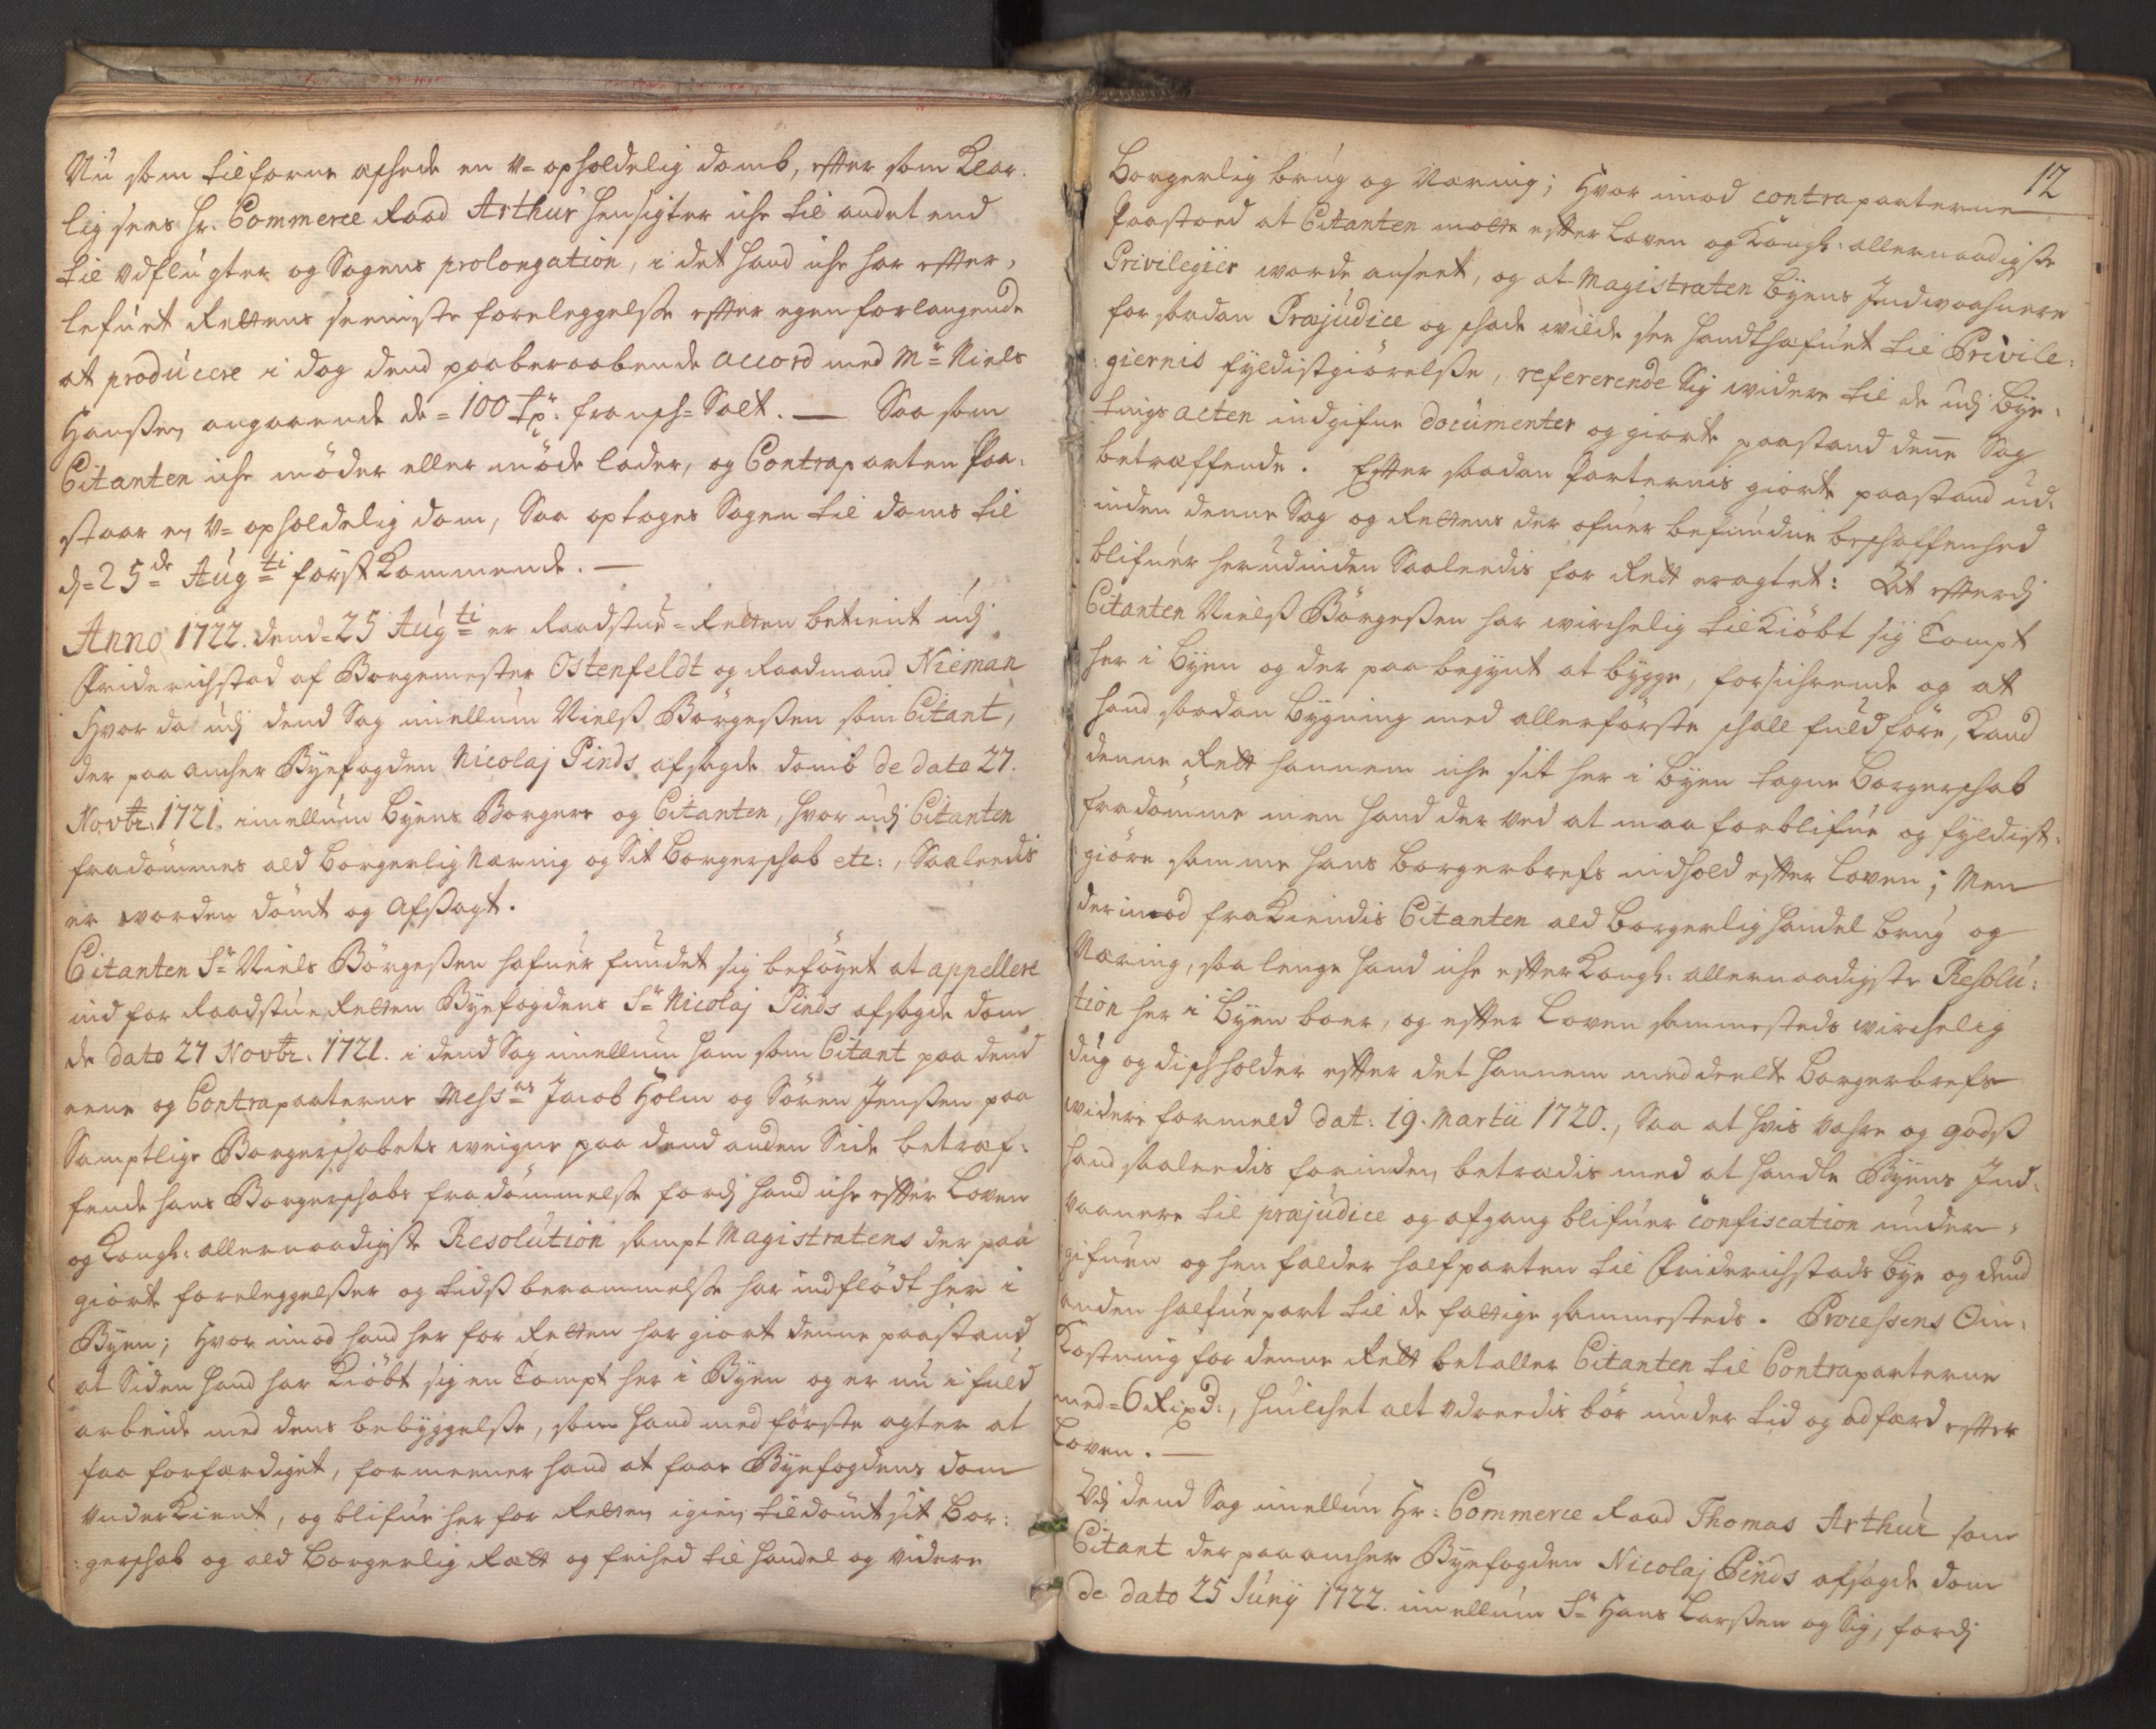 Nu som tilforne æschede en u-opholdelig domb, efter som klar-
lig sees Hr. Commerce Raad Arthur hensigter iche til andet end
til udflugter og Sagens prolongation, i det hand iche har efter-
lefuet Rettens seeniste foreleggelse efter egen forlangende
at producere i dag dend paaberaabende accord med Mr Niels
Hanssen angaaende de=100 tr. fransch-Salt. — Saa som
Citanten iche møder eller møde lader, og Contraparten Paa-
staar en u-opholdelig dom, Saa optages Sagen til doms til
d=25de Augti først Kommende. —
Anno 1722. dend=25 Augti er Raadstue-Retten betient udj
Friderichstad af Borgemester Ostenfeldt og Raadmand Nieman
Hvor da udj dend Sag imellum Nielss Børgessen som Citant,
der paa ancher Byefogden Nicolaj Pinds afsagde domb de dato 27.
Novbr. 1721. imellum Byens Borgere og Citanten, hvor udj Citanten
fradømmes ald borgerlig Næring og Sit borgerschab etc:, Saaleedis
er worden dømt og Afssagt.
Citanten Sr Niels Børgessen hafuer fundet sig beføyet at appellere
ind for Raadstue Retten Byefogdens Sr Nicolaj Pinds afsagde dom
de dato 27 Novbr. 1721. i dend Sag imellum ham som Citant paa dend
eene og Contraparterne Messrs Jacob Holm og Søren Jenssen paa
Samptlige Borgerschabets weigne paa dend anden Side betræf-
fende hans Borgerschabs fradømmelse fordj hand iche efter Loven
og Kongl: allernaadigste Resolution sampt Magistratens der paa
giorte foreleggelsser og tidss berammelse har indflødt her i
Byen; Hvor imod hand her for Retten har giort denne paastand
at Siden hand har Kiøbt sig en Tompt her i Byen og er nu i fuld
arbeide med dens bebyggelse, som hand med første agter at
faa forfærdiget, formeener hand at faae Byefogdens dom
underkient, og blifue her for Retten igien tildømt sit Bor-
gerschab og ald borgerlig Rætt og frihed til handel og videre
12
borgerlig brug og Næring; Hvor imod contraparterne
Paastoed at Citanten motte efter Loven og Kongl: allernaadigste
Privilegier worde anseet, og at Magistraten Byens Indwaahnere
for saadan Præjudice og schade wilde see handthæfuet til Privile-
giernis fyldistgiørelse, refererende Sig widere til de udj bye-
tings acten indgifne documenter og giorte paastand denne Sag
betræffende. Efter saadan Parternis giorte paastand ud-
inden denne Sag og Rettens der ofuer befundne beschaffenhed
blifuer herudinden Saaleedis for Rett eragtet: At efterdj
Citanten Nielss Børgessen har wirchelig tilkiøbt sig Tompt
her i Byen og der paa begynt at bygge, forsichrende og at
hand saadan bygning med allerførste schall fuldføre, kand
denne Rett hannem iche sit her i Byen tagne borgerschab
fradømme men hand der ved at maa forblifue og fyldist-
giøre samme hans borgerbrefs indhold efter Loven; Men
derimod frakiendis Citanten ald borgerlig handel brug og
Næring, saa lenge hand iche efter Kongl: allernaadigste Resolu-
tion her i Byen boer, og efter Loven sammesteds wirchelig
dug og disch holder efter det hannem meddeelte borgerbrefs
widere formeld dat: 19. Martii 1720., Saa at hvis vahre og godss
hand saaleedis forinden betrædis med at handle Byens Ind-
vaanere til præjudice og afgang blifuer confiscation under-
gifuen og henfalder halfparten til Friderichstads bye og dend
anden halfue part til de fattige sammesteds. Processens Om-
kostning for denne Rett betaller Citanten til Contraparterne
med=6 Rixd:, huilchet alt udreedis bør under tid og adfærd efter
Loven. —
Udj dend Sag imellum Hr: Commerce Raad Thomas Arthur som
Citant der paa ancher Byefogden Nicolaj Pinds afsagde dom
de dato 25 Junij 1722. imellum Sr Hans Larssen og Sig, fordj